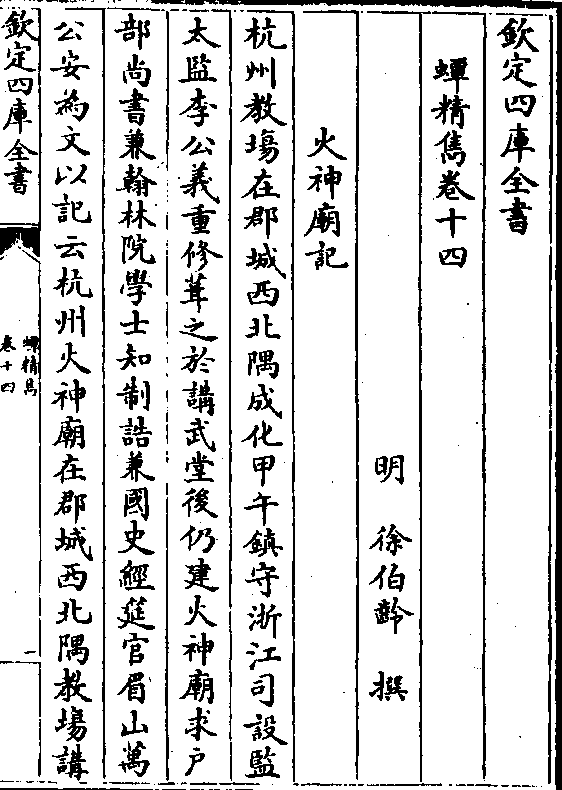 欽定四庫全書
蟫精雋卷十四
明 徐伯齡 撰
火神廟記
杭州教場在郡城西北隅成化甲午鎮守浙江司設監
太監李公義重修葺之於講武堂後仍建火神廟求户
部尚書兼翰林院學士知制誥兼國史經筵官眉山萬
公安為文以記云杭州火神廟在郡城西北隅教場講
欽定四庫全書
蟫精雋
卷十四
一